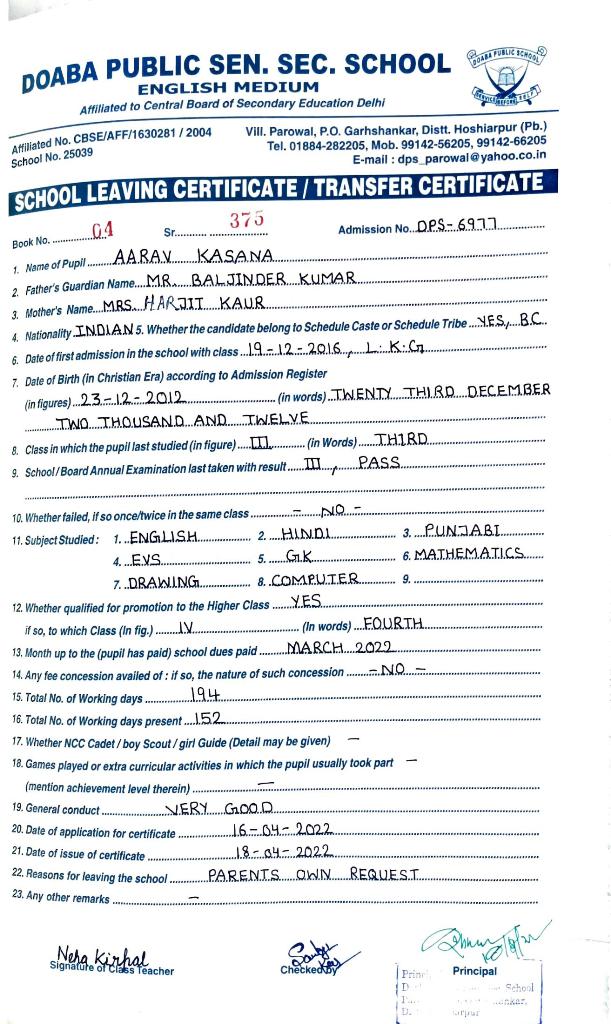 DOABA PUBLIC SEN. SEC. SCHOOL
ENGLISH MEDIUM
Affiliated to Central Board of Secondary Education Delhi
DOABA PUBLIC SCHOOL
Affiliated No. CBSE/AFF/1630281 / 2004
School No. 25039
Vill. Parowal, P.O. Garhshankar, Distt. Hoshiarpur (Pb.)
Tel. 01884-282205, Mob. 99142-56205, 99142-66205
E-mail : dps_parowal@yahoo.co.in
SCHOOL LEAVING CERTIFICATE / TRANSFER CERTIFICATE
Book No. 04 Sr. 375 Admission No. DPS-6977
1. Name of Pupil AARAV KASANA
2. Father's Guardian Name MR. BALJINDER KUMAR
3. Mother's Name MRS. HARJIT KAUR
4. Nationality INDIAN 5. Whether the candidate belong to Schedule Caste or Schedule Tribe YES, B.C
6. Date of first admission in the school with class 19-12-2016, L.K.G
7. Date of Birth (in Christian Era) according to Admission Register
(in figures) 23-12-2012 (in words) TWENTY THIRD DECEMBER
TWO THOUSAND AND TWELVE
8. Class in which the pupil last studied (in figure) III (in Words) THIRD
9. School / Board Annual Examination last taken with result III, PASS
10. Whether failed, if so once/twice in the same class - NO -
11. Subject Studied : 1. ENGLISH 2. HINDI 3. PUNJABI
4. EVS 5. GK 6. MATHEMATICS
7. DRAWING 8. COMPUTER 9.
12. Whether qualified for promotion to the Higher Class YES
if so, to which Class (In fig.) IV (In words) FOURTH
13. Month up to the (pupil has paid) school dues paid MARCH 2022
14. Any fee concession availed of : if so, the nature of such concession - NO -
15. Total No. of Working days 194
16. Total No. of Working days present 152
17. Whether NCC Cadet / boy Scout / girl Guide (Detail may be given) —
18. Games played or extra curricular activities in which the pupil usually took part —
(mention achievement level therein) —
19. General conduct VERY GOOD
20. Date of application for certificate 16-04-2022
21. Date of issue of certificate 18-04-2022
22. Reasons for leaving the school PARENTS OWN REQUEST
23. Any other remarks —
Neha Kirpal
Signature of Class Teacher
Checked by
Principal
School